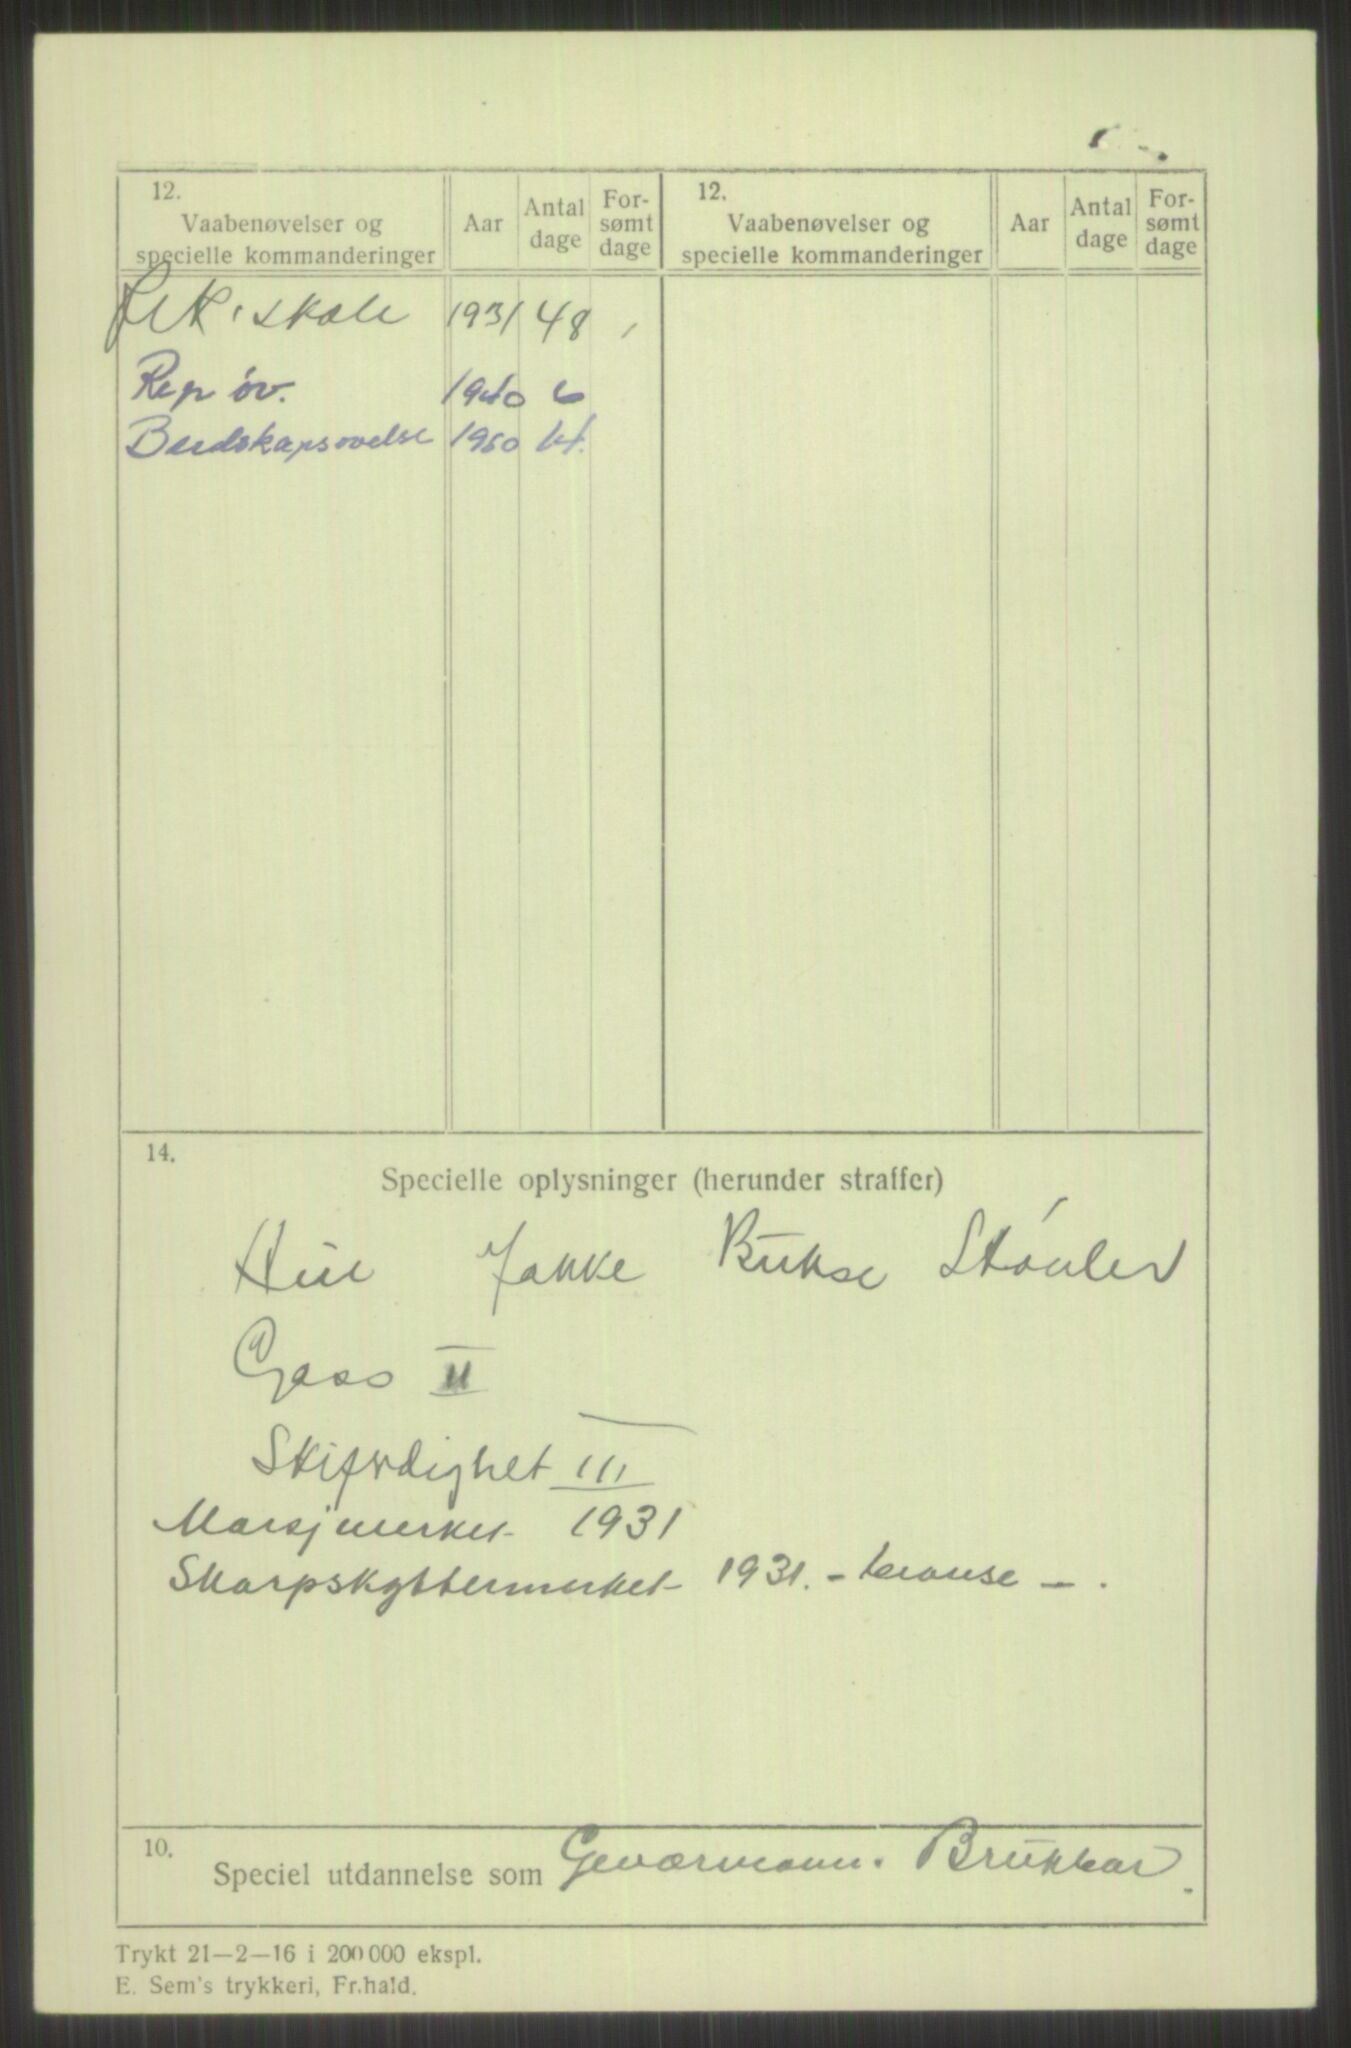 12.
Vaabenøvelser og
specielle kommanderinger
Aar
Antal
dage
For-
sømt
dage
12.
Vaabenøvelser og
specielle kommanderinger
Aar
Antal
dage
For-
sømt
dage
skole 1931 48
Rep øv. 1940 6
Berdskapsøvelse 1950 14.
14.
Specielle oplysninger (herunder straffer)
Hue Jakke Bukse Støvler
Gass II
Skiferdighet III
Marsjmerket 1931
Skarpskyttermerket 1931. - bronse - .
10.
Speciel utdannelse som Geværmann. Brukbar.
Trykt 21—2—16 i 200 000 ekspl.
E. Sem's trykkeri, Fr.hald.